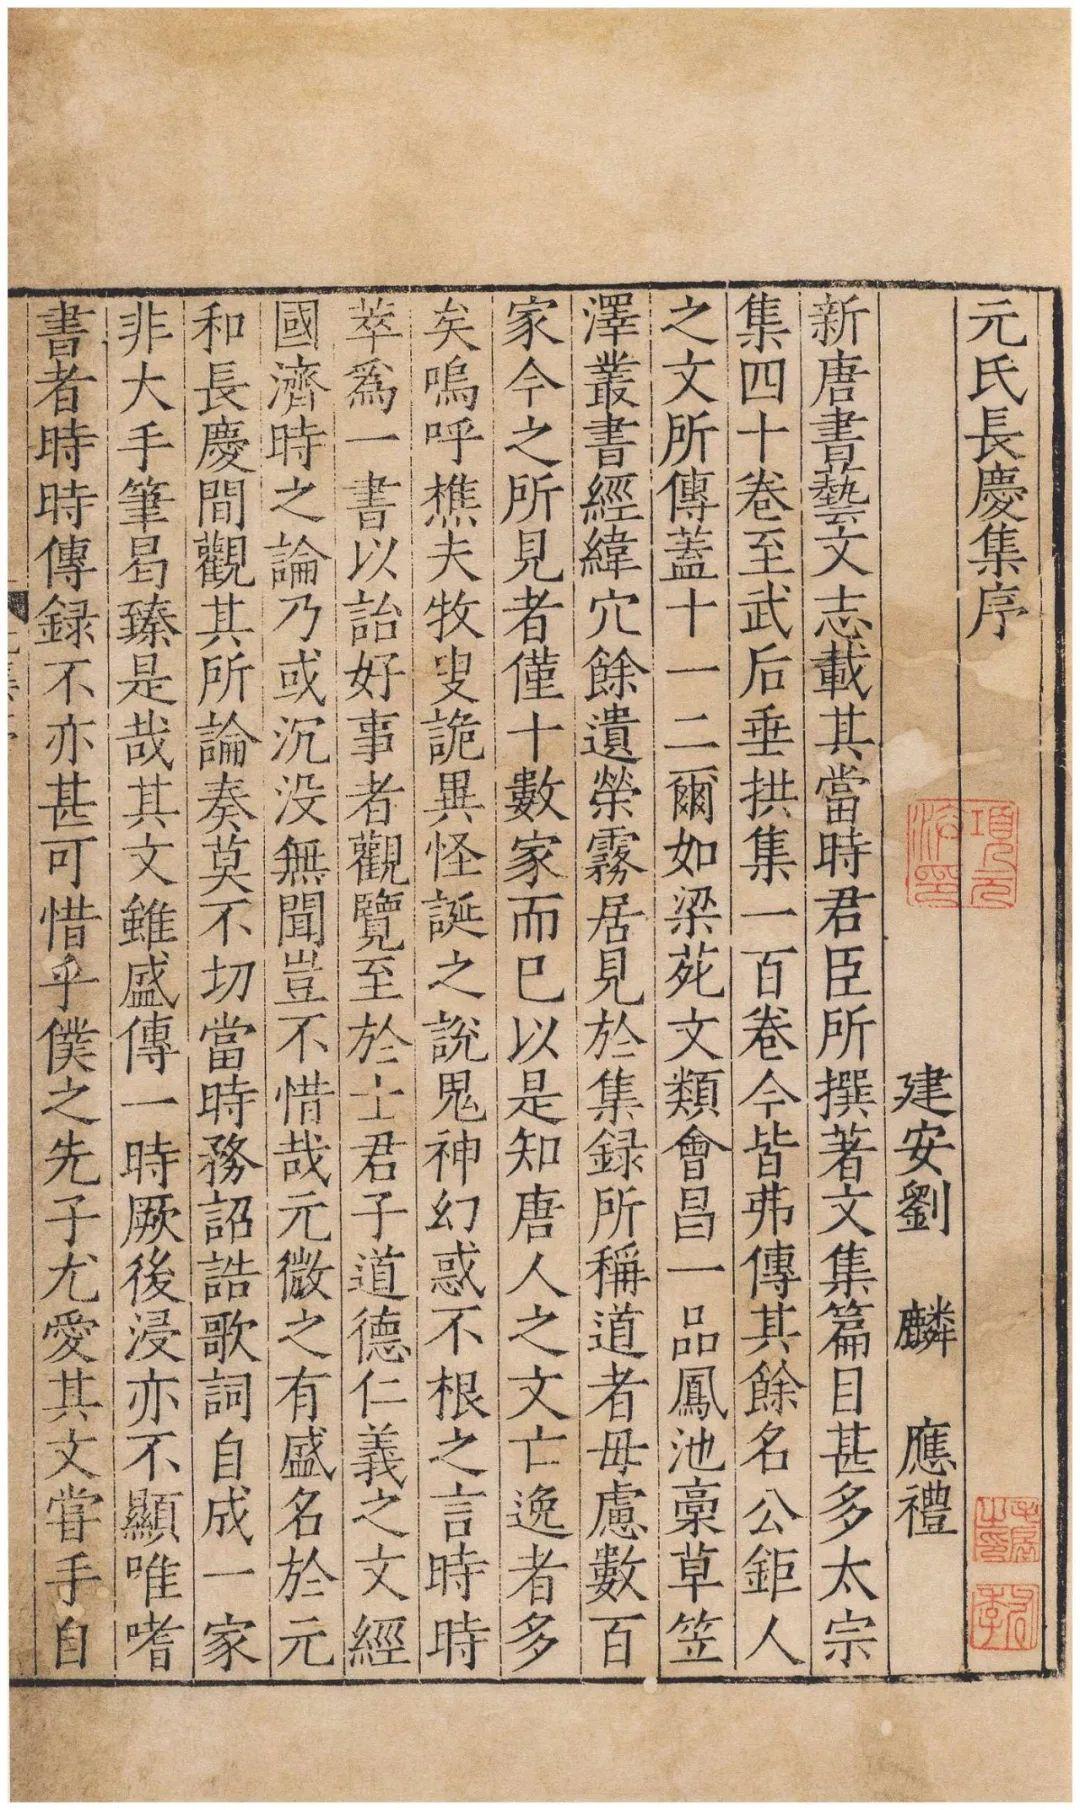 元氏長慶集序
建安劉 麟 應禮
新唐書藝文志載其當時君臣所撰著文集篇目甚多太宗
集四十卷至武后垂拱集一百卷今皆弗傳其餘名公鉅人
之文所傳蓋十一二爾如梁苑文類會昌一品鳳池稾草笠
澤叢書經緯穴餘遺榮霧居見於集録所稱道者毋慮數百
家今之所見者僅十數家而已以是知唐人之文亡逸者多
矣嗚呼樵夫牧叟詭異怪誕之說鬼神幻惑不根之言時時
萃爲一書以詒好事者觀覽至於士君子道德仁義之文經
國濟時之論乃或沉没無聞豈不惜哉元微之有盛名於元
和長慶間觀其所論奏莫不切當時務詔誥歌詞自成一家
非大手筆曷臻是哉其文雖盛傳一時厥後浸亦不顯唯嗜
書者時時傳録不亦甚可惜乎僕之先子尤愛其文嘗手自
項元
汴印